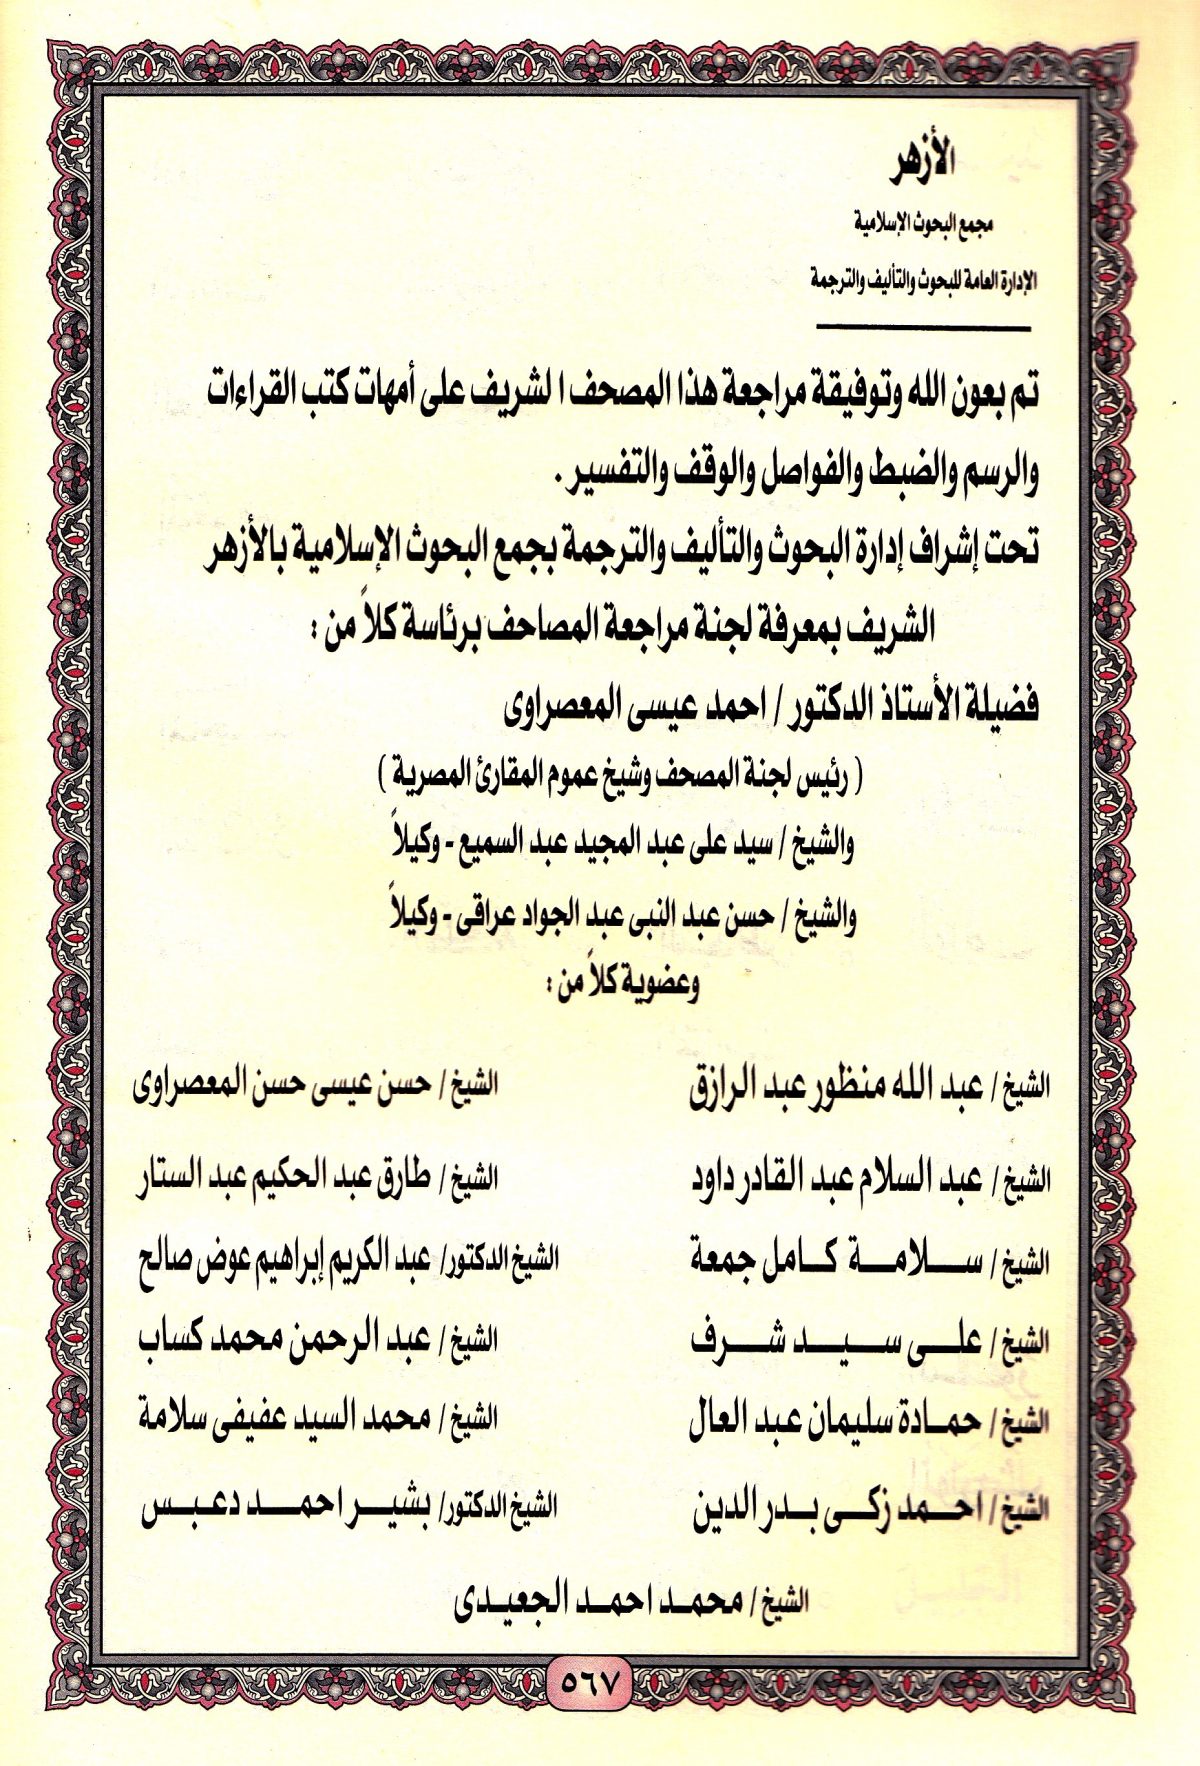 الأزهر
مجمع البحوث الإسلامية
الإدارة العامة للبحوث والتأليف والترجمة
تم بعون الله وتوفيقة مراجعة هذا المصحف الشريف على أمهات كتب القراءات
والرسم والضبط والفواصل والوقف والتفسير .
تحت إشراف إدارة البحوث والتأليف والترجمة بجمع البحوث الإسلامية بالأزهر
الشريف بمعرفة لجنة مراجعة المصاحف برئاسة كلاً من :
فضيلة الأستاذ الدكتور / احمد عيسى المعصراوى
( رئيس لجنة المصحف وشيخ عموم المقارئ المصرية )
والشيخ / سيد على عبد المجيد عبد السميع - وكيلاً
والشيخ / حسن عبد النبى عبد الجواد عراقى - وكيلاً
وعضوية كلاً من :
الشيخ / عبد الله منظور عبد الرازق الشيخ / حسن عيسى حسن المعصراوى
الشيخ / عبد السلام عبد القادر داود الشيخ / طارق عبد الحكيم عبد الستار
الشيخ / سلامة كامل جمعة الشيخ الدكتور/ عبد الكريم إبراهيم عوض صالح
الشيخ / على سيد شرف الشيخ / عبد الرحمن محمد كساب
الشيخ / حمادة سليمان عبد العال الشيخ / محمد السيد عفيفى سلامة
الشيخ / احمد زكى بدر الدين الشيخ الدكتور/ بشير احمد دعبس
الشيخ / محمد احمد الجعيدى
٥٦٧